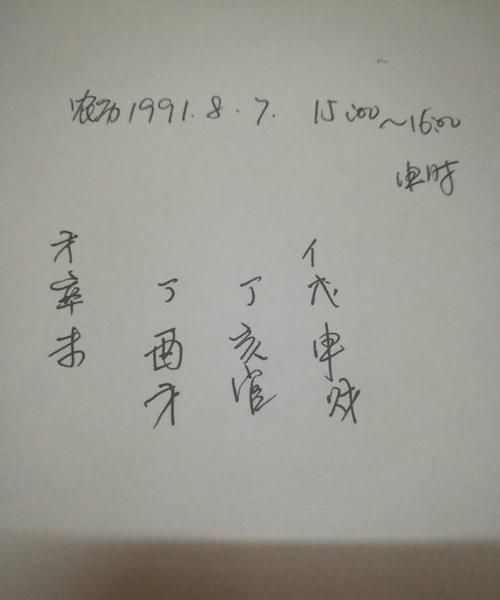 农历1991.8.7. 15:00~16:00
申时
才 亻
辛 丁 丁 戊
未 酉 亥 申
才 官 财